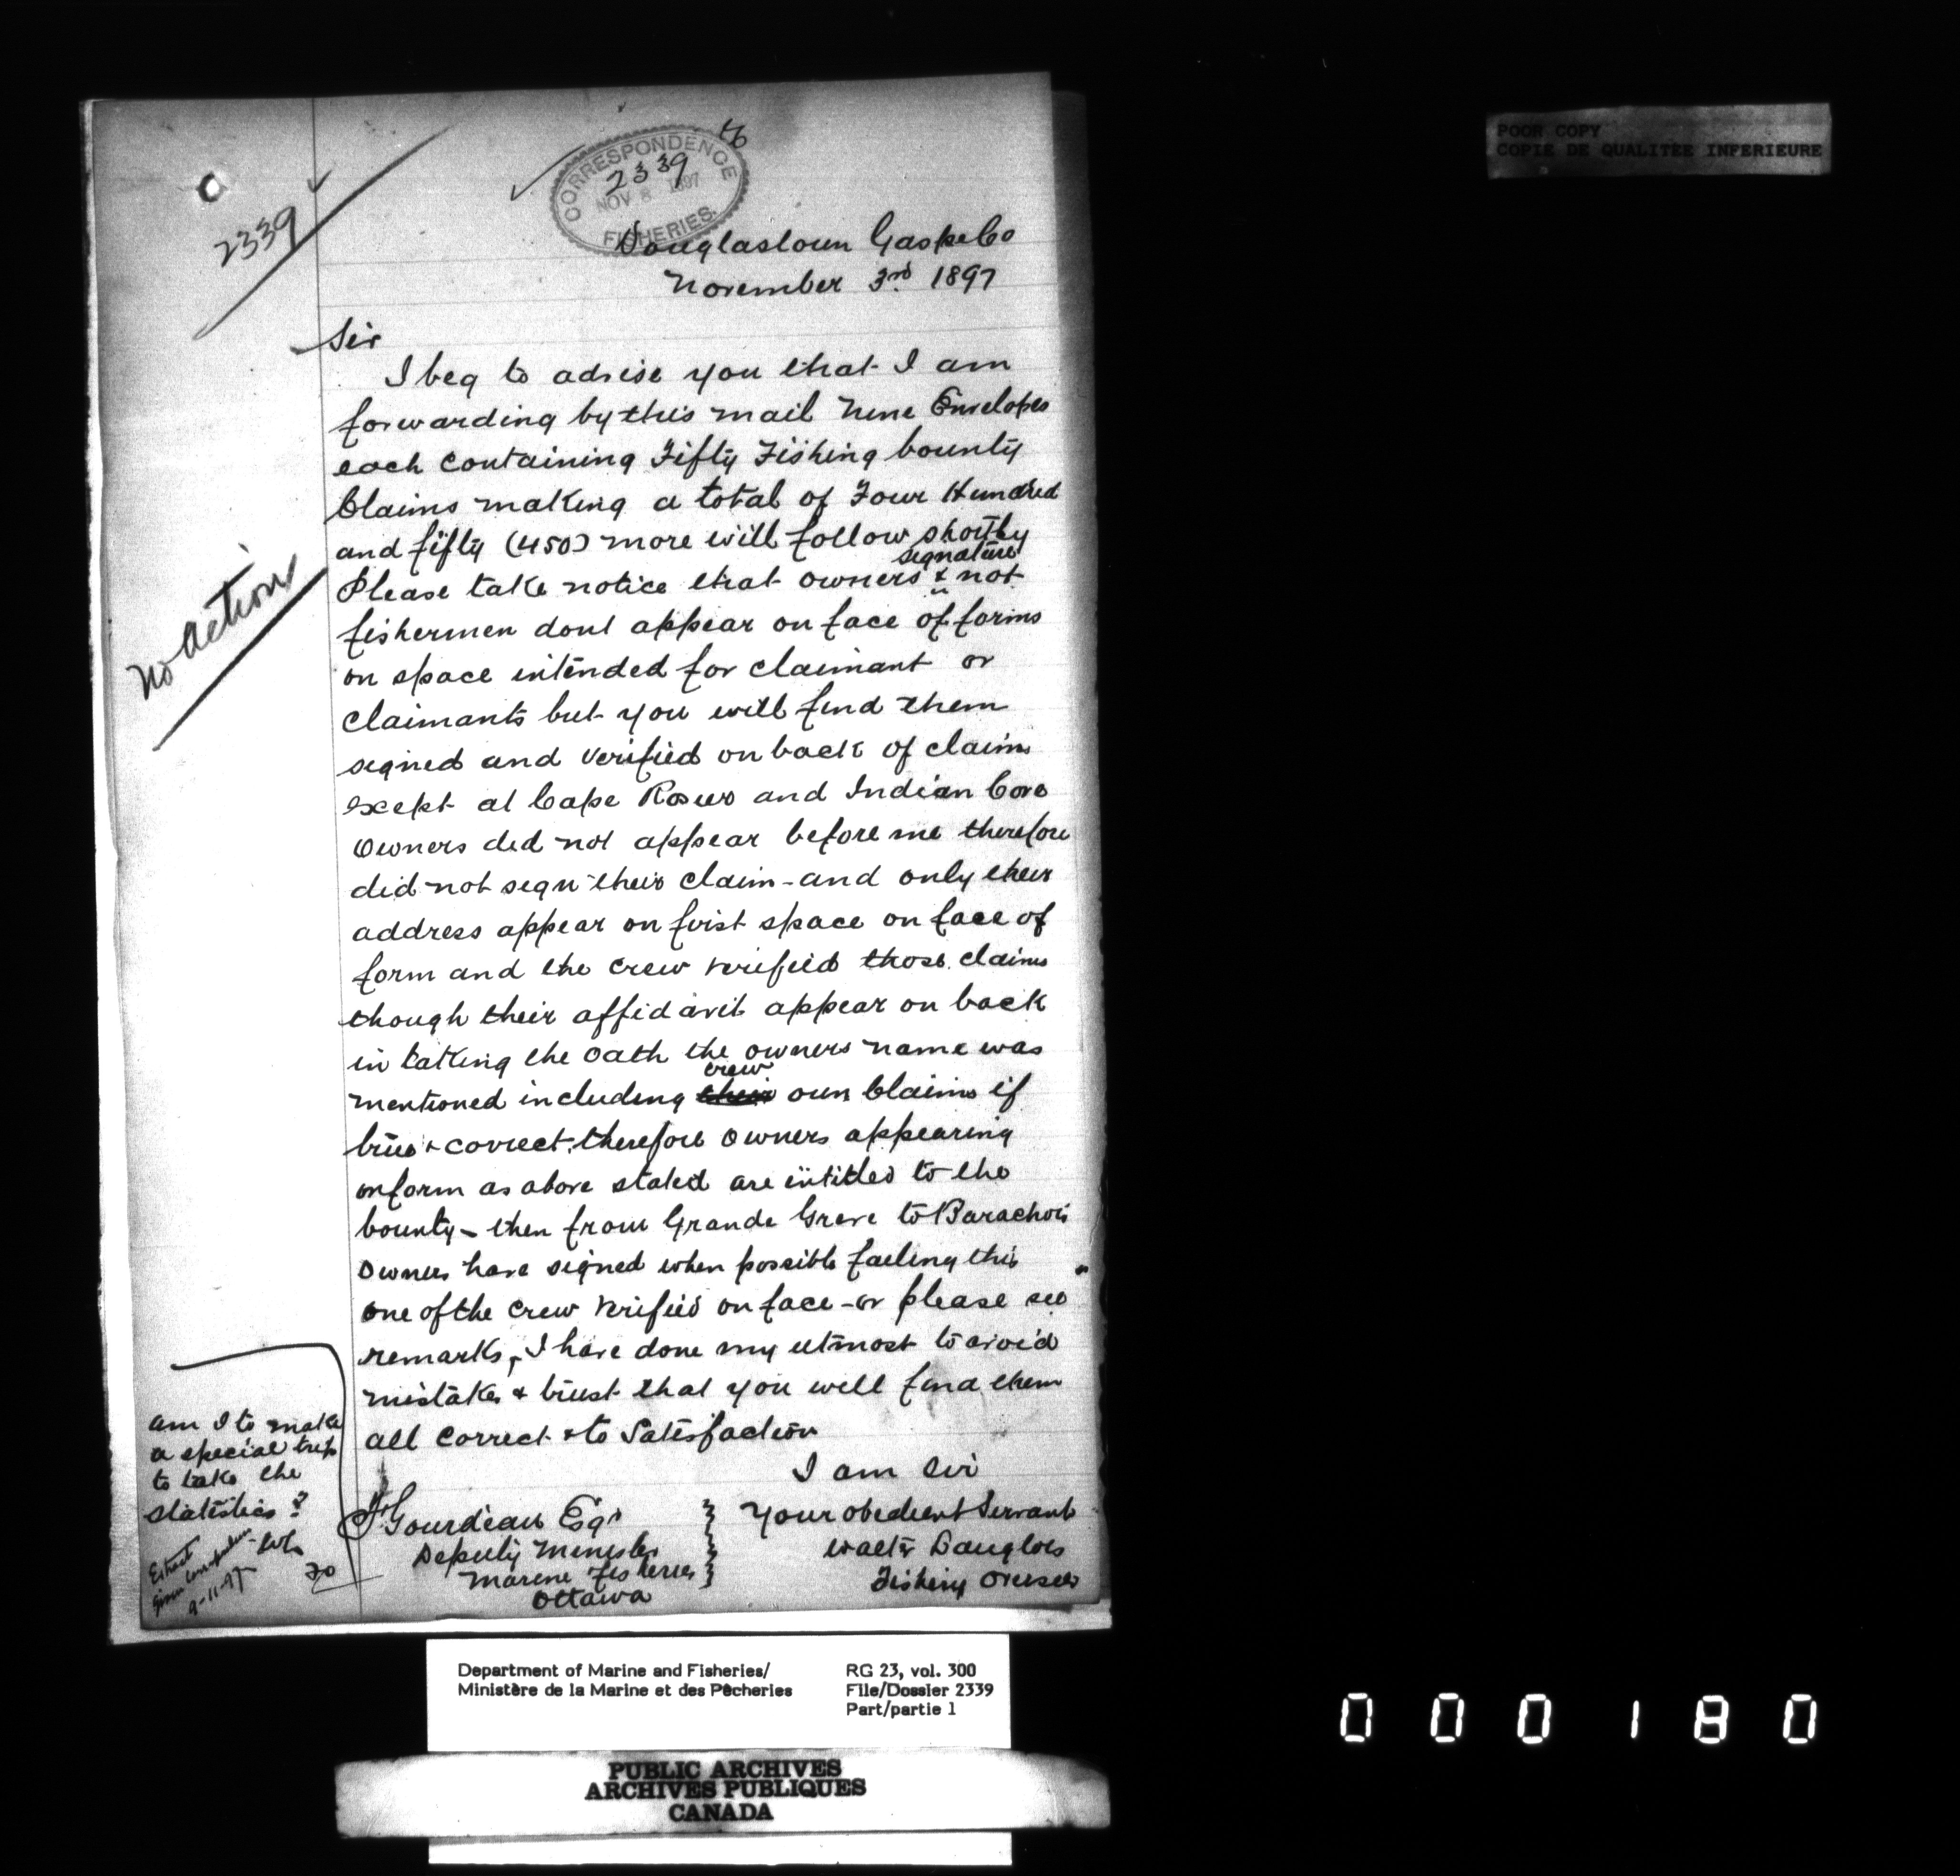 POOR COPY
COPIE DE QUALITEE INFERIEURE
CORRESPONDENCE
2339
NOV 8 1897
FISHERIES.
2339
Douglastown Gaspe Co
November 3rd 1897
Sir
I beg to advise you that I am
forwarding by this mail nine Envelopes
each containing Fifty Fishing bounty
Claims making a total of Four Hundred
and fifty (450) more will follow shortly
signature
Please take notice that owners & not
fishermen dont appear on face of forms
on space intended for claimant or
claimants but you will find them
signed and verified on back of claims
except at Cape Rosier and Indian Cove
owners did not appear before me therefore
did not sign their claim - and only their
address appear on first space on face of
form and the crew verified those claims
though their affidavit appear on back
in taking the oath the owners name was
crew
mentioned including their own Claims if
true & correct. therefore owners appearing
on form as above stated are intitled to the
bounty - then from Grande Greve to Barachois
Owners have signed when possible failing this
one of the crew verified on face - or please see
remarks, I have done my utmost to avoid
mistakes & trust that you will find them
all correct & to Satisfaction
I am Sir
Your obedient Servant
Walter Danglois
Fishery Overseer
F Gourdeau Esqr
Deputy Minister
Marine Fisheries
Ottawa
No action
am I to make
a special trip
to take the
statistics?
Extract
9-11-97
Department of Marine and Fisheries/
Ministère de la Marine et des Pêcheries
RG 23, vol. 300
File/Dossier 2339
Part/partie 1
PUBLIC ARCHIVES
ARCHIVES PUBLIQUES
CANADA
000180